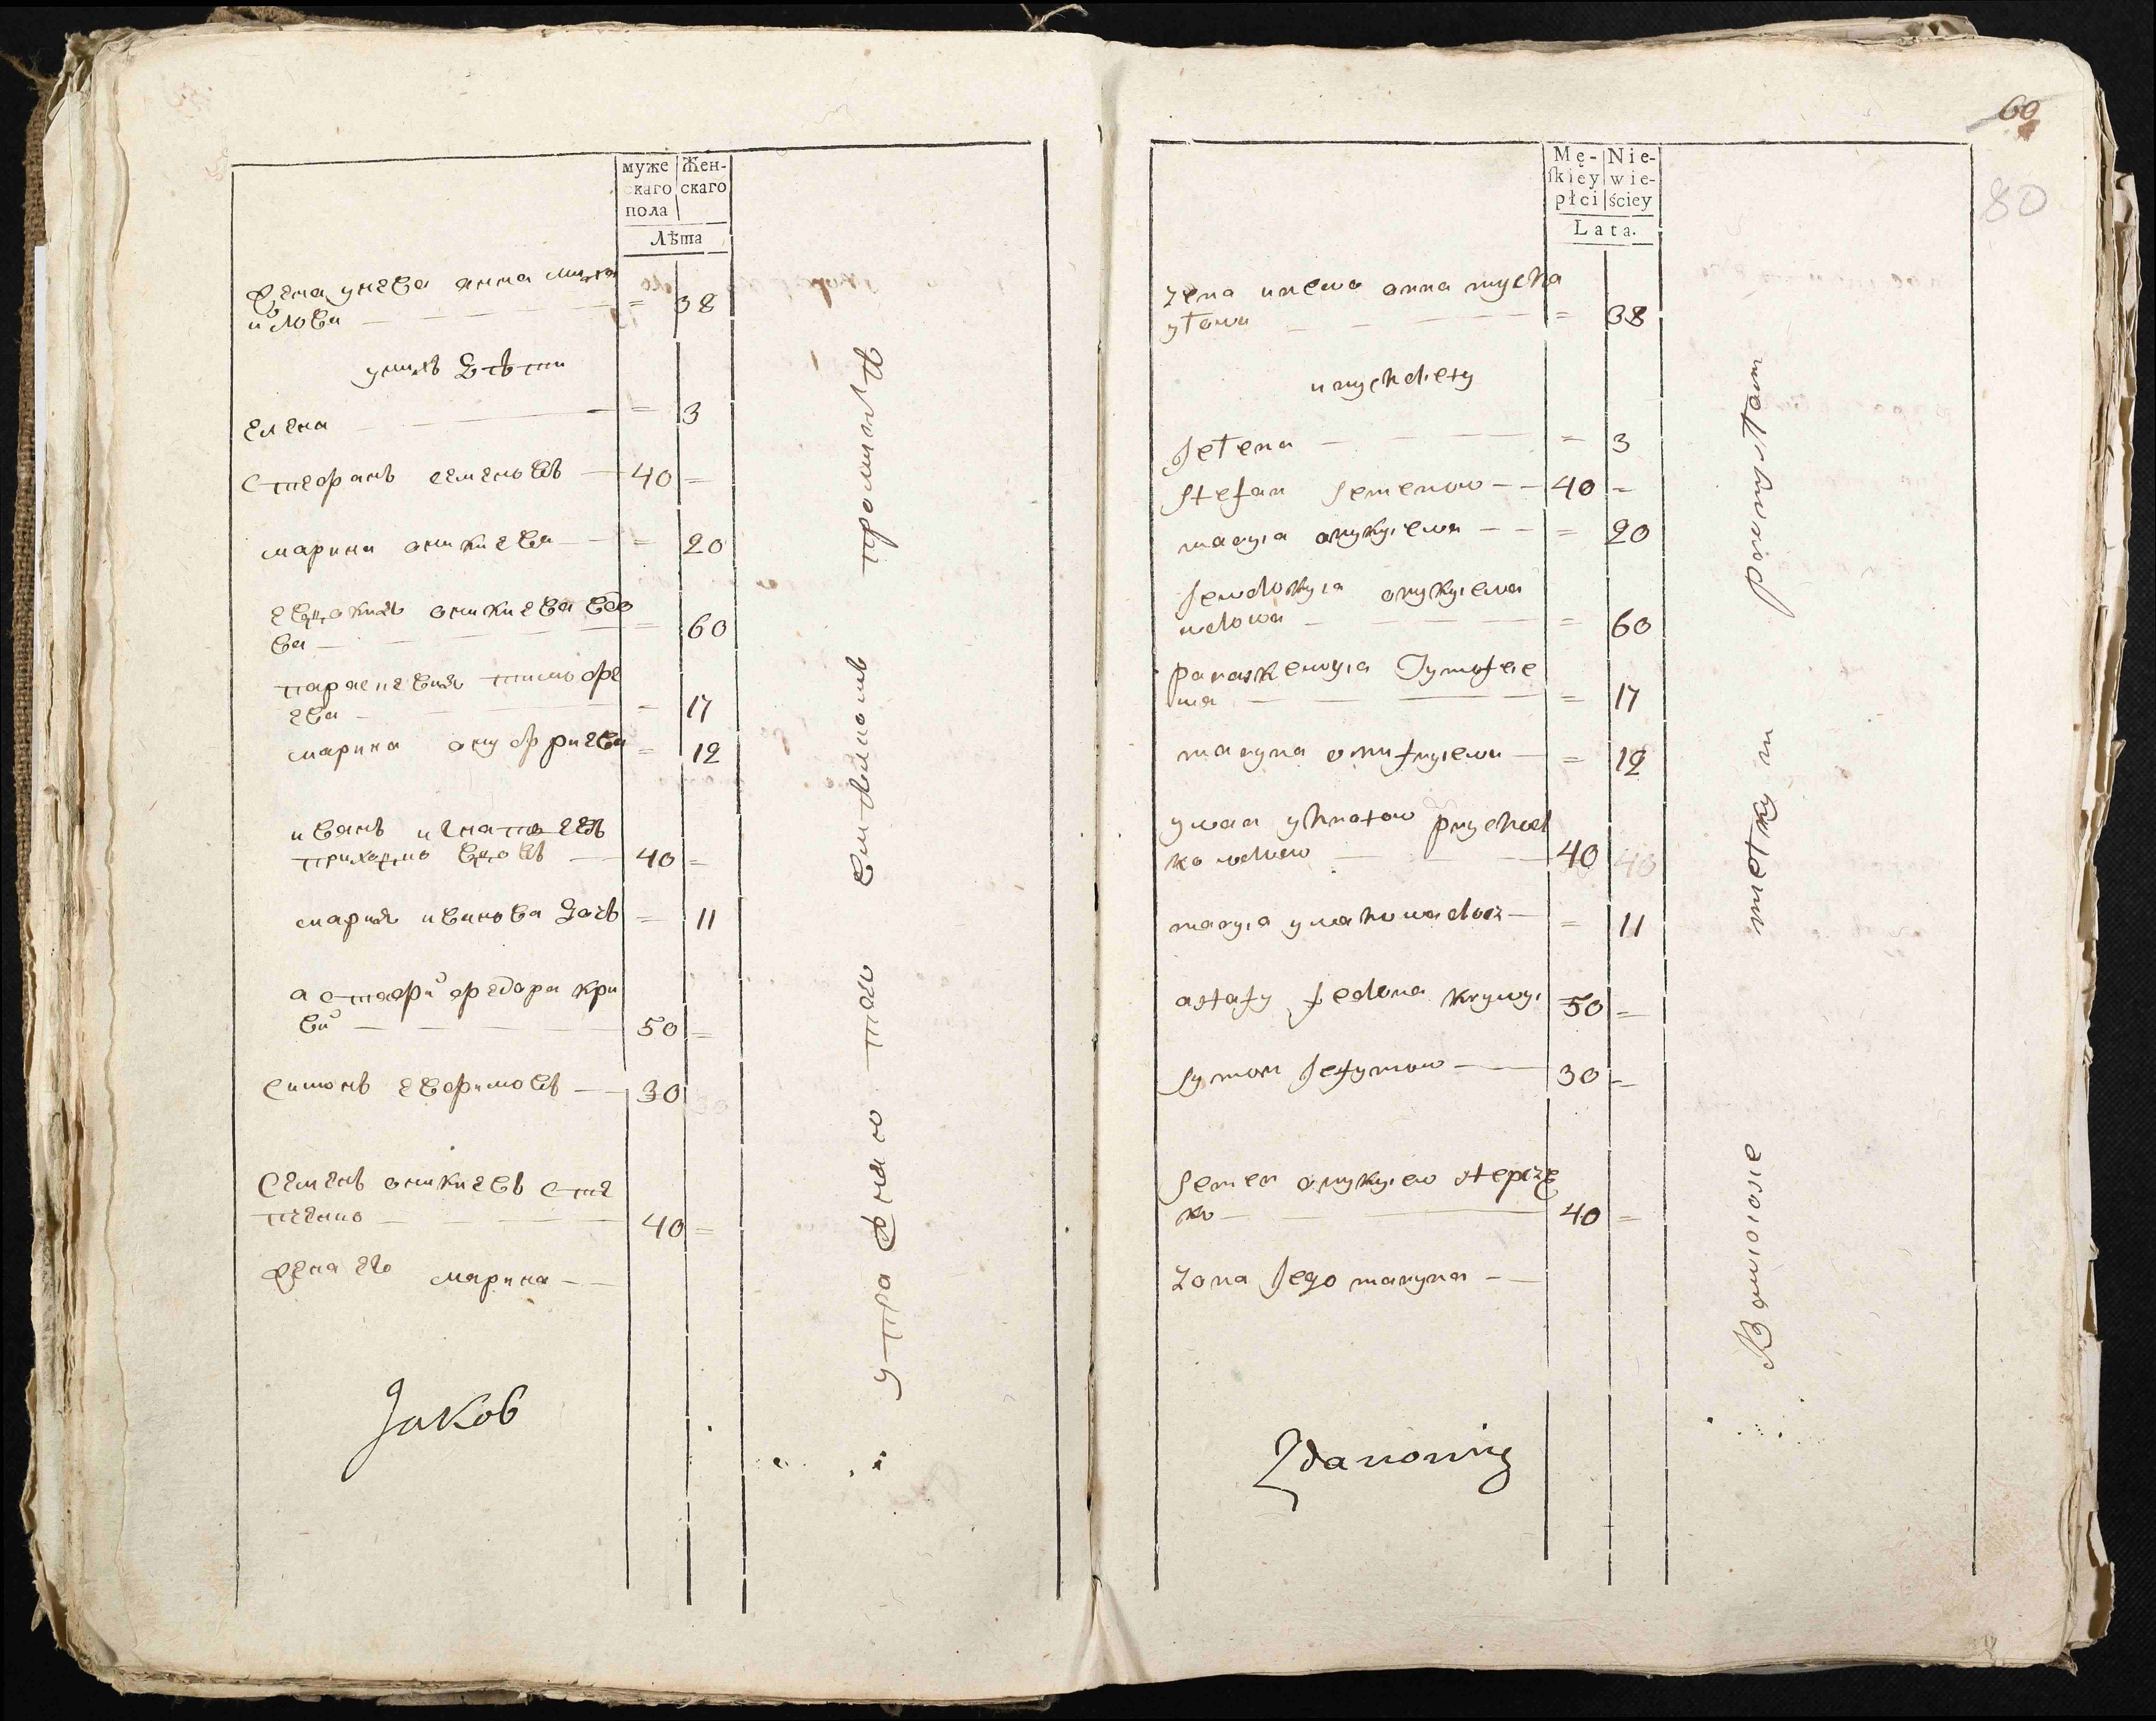 муже
скаго
пола
Жен-
скаго
Лѣта
жена унево анна миха
йлова — = 38
унихъ дѣти
елена — = 3
Стефанъ семеновъ — 40 =
марина оникиева — = 20
евдокия оникиева вдо
ва — = 60
параскевия тимофе
ева — = 17
марина онуфриева = 12
иванъ игнатовъ
приходко вдовъ — 40 =
мария иванова дочь = 11
астафий федора кри
вий — 50 =
Симонъ ефимовъ — 30
Семенъ оникиевъ сте
пченко — 40 =
жена его марина —
Jakob
60
80
Mę-
skiey
płci
Nie-
wie-
ściey
Lata.
żena unewo anna mycha
yłowa — = 38
unych diety
Jełena — = 3
Stefan Semenow — 40 =
maryia onykyiewa — = 20
Jewdokyia onykyiewa
wdowa — = 60
paraskewyia Tymofiie
wa — = 17
maryna onufryiewa — = 12
ywan yhnatow prychod
ko wdow — 40 40
maryia ywanowa docz — = 11
astafy fedora krywyi 50 =
Symon Jefymow — 30 =
Semen onykyiew stepcze
ko — 40 =
żona Jego maryna —
Zdanowicz